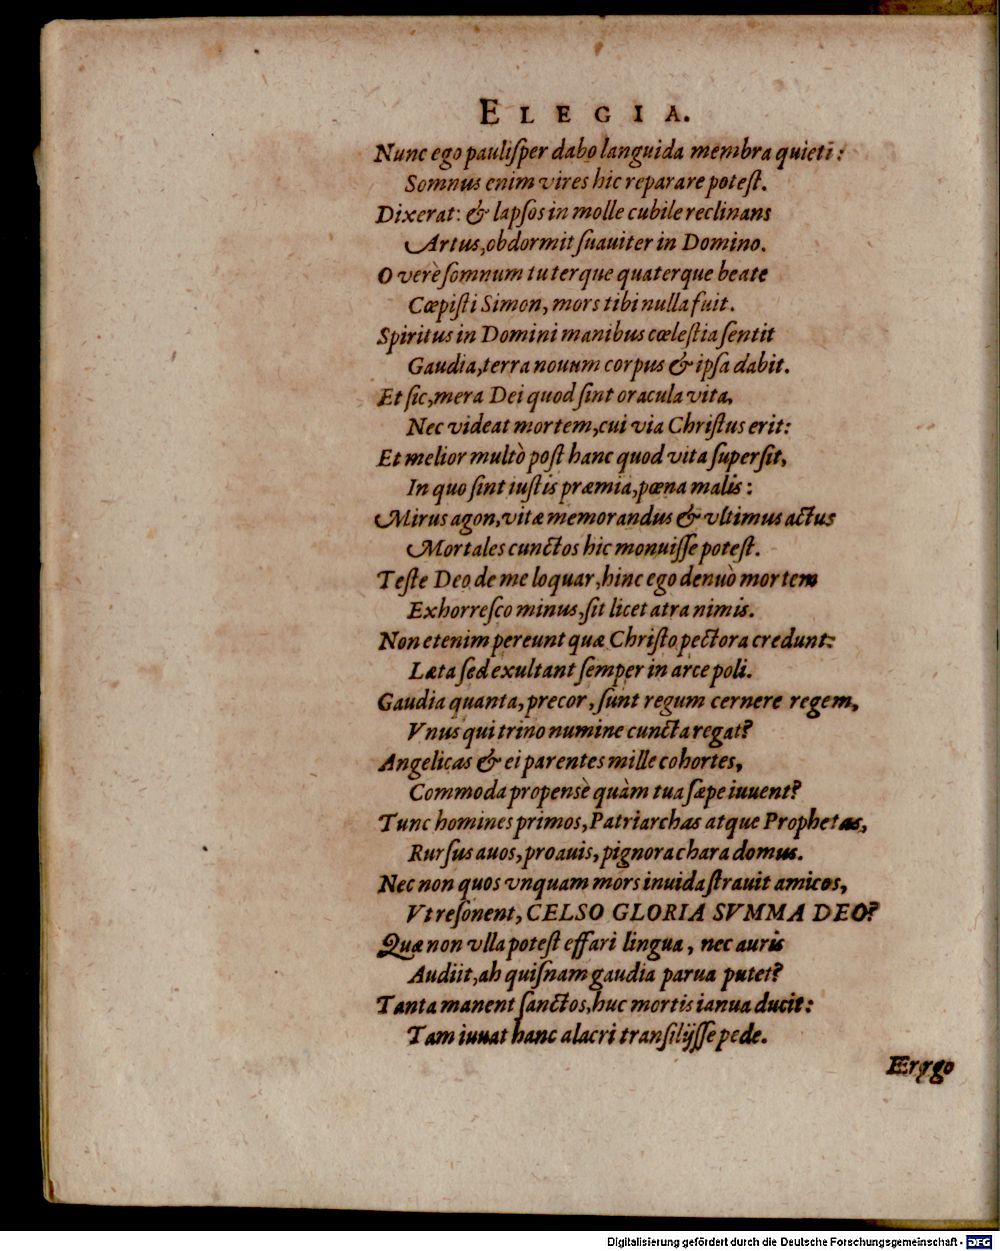 ELEGIA.
Nunc ego pauliſper dabo languida membra quieti:
Somnus enim vires hic reparare poteſt.
Dixerat: & lapſos in molle cubile reclinans
Artus, obdormit ſuauiter in Domino.
O verè ſomnum tu terque quaterque beate
Cœpiſti Simon, mors tibi nulla fuit.
Spiritus in Domini manibus cœleſtia ſentit
Gaudia, terra nouum corpus & ipſa dabit.
Et ſic, mera Dei quod ſint oracula vita,
Nec videat mortem, cui via Chriſtus erit:
Et melior multò poſt hanc quod vita ſuperſit,
In quo ſint iuſtis præmia, pœna malis:
Mirus agon, vitæ memorandus & vltimus actus
Mortales cunctos hic monuiſſe poteſt.
Teſte Deo de me loquar, hinc ego denuò mortem
Exhorreſco minus, ſit licet atra nimis.
Non etenim pereunt quæ Chriſto pectora credunt:
Læta ſed exultant ſemper in arce poli.
Gaudia quanta, precor, ſunt regum cernere regem,
Vnus qui trino numine cuncta regat?
Angelicas & ei parentes mille cohortes,
Commoda propensè quàm tua ſæpe iuuent?
Tunc homines primos, Patriarchas atque Prophetas,
Rurſus auos, proauis, pignora chara domus.
Nec non quos vnquam mors inuida ſtrauit amicos,
Vt reſonent, CELSO GLORIA SVMMA DEO?
Quæ non vlla poteſt effari lingua, nec auris
Audiit, ah quiſnam gaudia parua putet?
Tanta manent ſanctos, huc mortis ianua ducit:
Tam iuuat hanc alacri tranſilijſſe pede.
Ergo
Digitalisierung gefördert durch die Deutsche Forschungsgemeinschaft - DFG